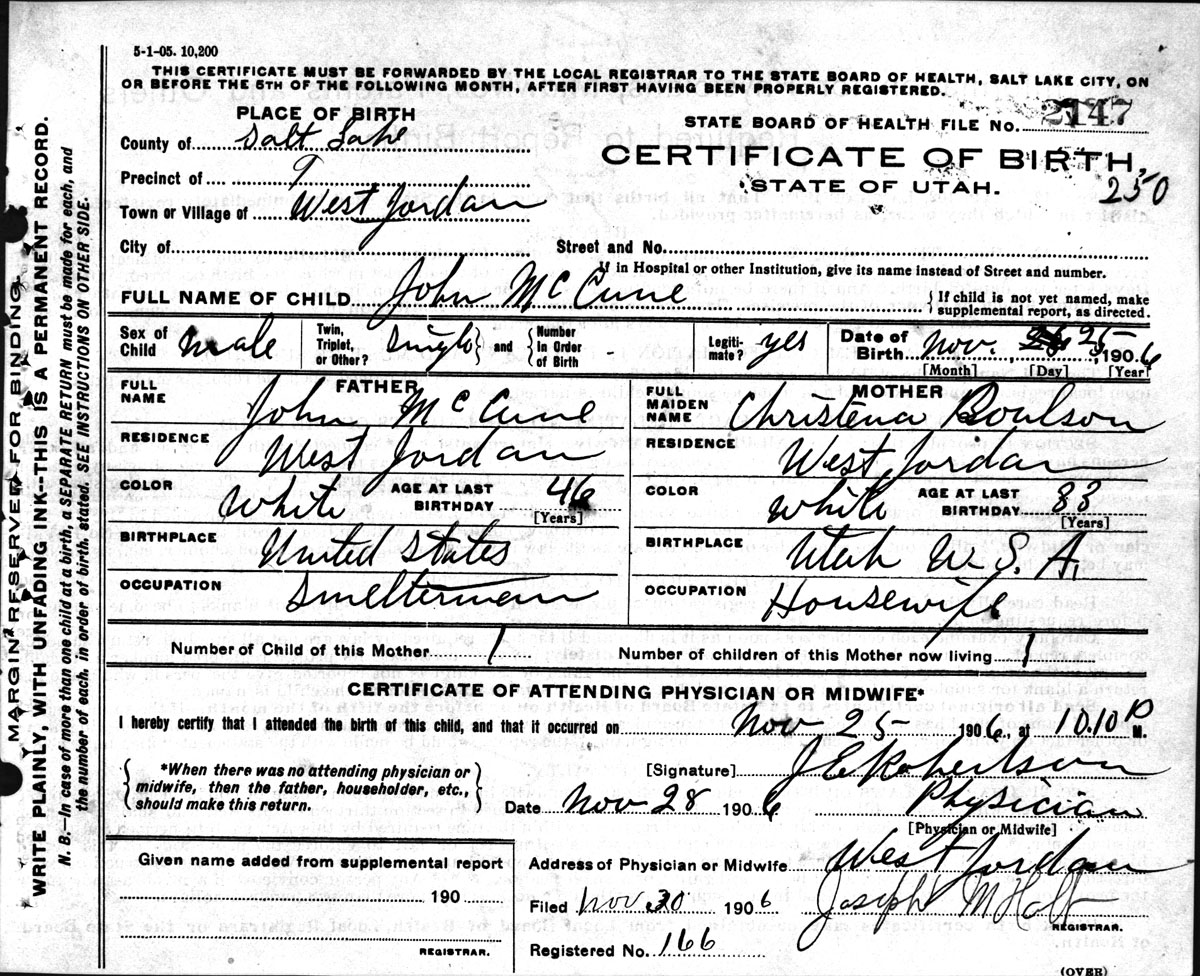 5-1-05. 10,200
THIS CERTIFICATE MUST BE FORWARDED BY THE LOCAL REGISTRAR TO THE STATE BOARD OF HEALTH, SALT LAKE CITY, ON
OR BEFORE THE 5TH OF THE FOLLOWING MONTH, AFTER FIRST HAVING BEEN PROPERLY REGISTERED.
MARGIN RESERVED FOR BINDING
WRITE PLAINLY, WITH UNFADING INK--THIS IS A PERMANENT RECORD.
N. B.—In case of more than one child at a birth, a SEPARATE RETURN must be made for each, and
the number of each, in order of birth, stated. SEE INSTRUCTIONS ON OTHER SIDE.
PLACE OF BIRTH
County of Salt Lake
Precinct of
Town or Village of West Jordan
STATE BOARD OF HEALTH FILE No. 2147
CERTIFICATE OF BIRTH,
STATE OF UTAH.
250
City of Street and No.
If in Hospital or other Institution, give its name instead of Street and number.
FULL NAME OF CHILD John McCune { If child is not yet named, make supplemental report, as directed.
Sex of Child male Twin, Triplet, or Other? single } and { Number in Order of Birth Legiti- mate? yes Date of Birth Nov. 25, 1906
[Month] [Day] [Year]
FATHER
FULL NAME John McCune
RESIDENCE West Jordan
COLOR White AGE AT LAST BIRTHDAY 46
[Years]
BIRTHPLACE United States
OCCUPATION Smelterman
MOTHER
FULL MAIDEN NAME Christena Boulson
RESIDENCE West Jordan
COLOR White AGE AT LAST BIRTHDAY 33
[Years]
BIRTHPLACE Utah U.S.A.
OCCUPATION Housewife
Number of Child of this Mother 1 Number of children of this Mother now living 1
CERTIFICATE OF ATTENDING PHYSICIAN OR MIDWIFE*
I hereby certify that I attended the birth of this child, and that it occurred on Nov 25 1906, at 10.10 P M.
{ *When there was no attending physician or
midwife, then the father, householder, etc.,
should make this return. }
[Signature] J E Robertson
Date Nov 28 1906 Physician
[Physician or Midwife]
Given name added from supplemental report
190
REGISTRAR.
Address of Physician or Midwife West Jordan
Filed Nov 30 1906 Joseph M Holt
REGISTRAR
Registered No. 166
(OVER)